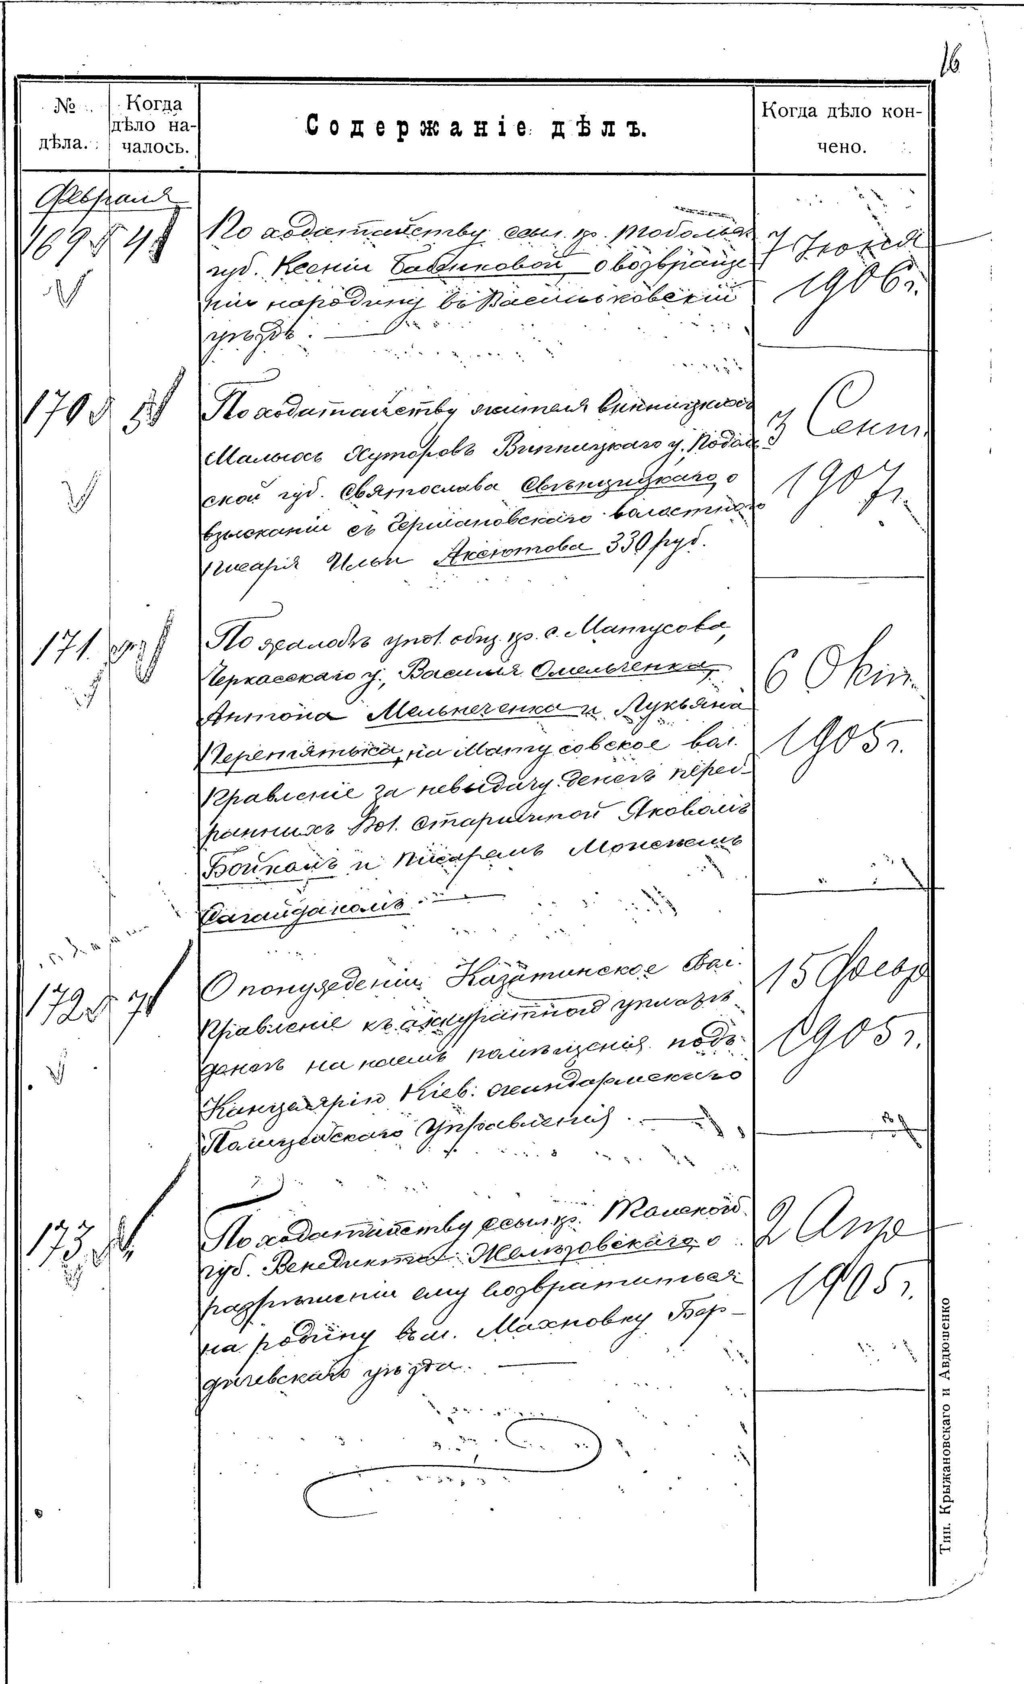 16
№ дѣла.
Когда дѣло началось.
Содержаніе дѣлъ.
Когда дѣло кончено.
Февраля
169 4
По ходатайству ссыл. кр. Тобольск.
губ. Ксеніи Бабенковой о возвраще-
ніи на родину въ Васильковскій
уѣздъ.
7 Іюня
1906 г.
170 5
По ходатайству жителя Винницкихъ
Малыхъ Хуторовъ Винницкаго у. Подоль-
ской губ. Святослава о
взысканіи съ Германовскаго волостного
писаря Ильи Аксютова 330 руб.
3 Сент.
1907 г.
171.
По жалобѣ упол. общ. кр. с. Матусова,
Черкасскаго у., Василія Омельченка,
Антона Мельниченка и Лукьяна
Перетятька, на Матусовское вол.
Правленіе за невыдачу денегъ переб-
ранныхъ Вол. Старшиной Яковомъ
Бойкомъ и Писаремъ Моисеемъ
Сагайдакомъ.
6 Окт.
1905 г.
172 7
О понужденіи Казатинское Вол.
Правленіе къ аккуратной уплатѣ
денегъ на наемъ помѣщенія подъ
Канцелярію Кіев. жандармскаго
Полицейскаго Управленія.
15 Февр
1905 г.
173
По ходатайству ссыл. кр. Томской
губ. Венедикта о
разрѣшеніи ему возвратиться
на родину въ м. Махновку Бер-
дичевскаго уѣзда.
2 Апр
1905 г.
Тип. Крыжановскаго и Авдюшенко